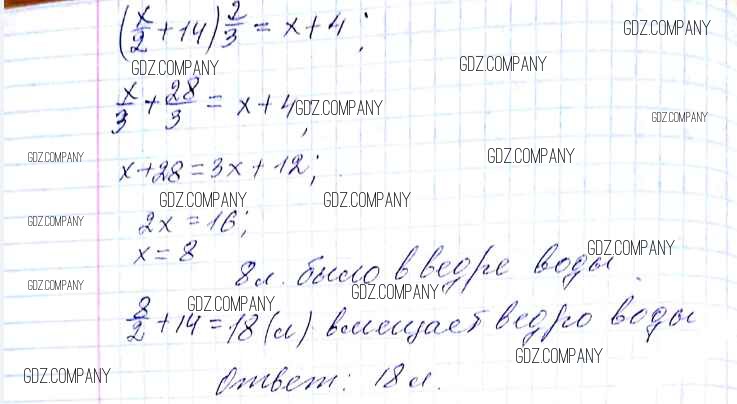 (x/2 + 14) 2/3 = x + 4; GDZ.COMPANY
GDZ.COMPANY GDZ.COMPANY
x/3 + 28/3 = x + 4; GDZ.COMPANY GDZ.COMPANY
GDZ.COMPANY GDZ.COMPANY
x + 28 = 3x + 12;
GDZ.COMPANY GDZ.COMPANY
GDZ.COMPANY 2x = 16;
x = 8 GDZ.COMPANY
GDZ.COMPANY 8 л. было в ведре воды
GDZ.COMPANY GDZ.COMPANY
8/2 + 14 = 18 (л) вмещает ведро воды
GDZ.COMPANY
GDZ.COMPANY Ответ: 18 л.